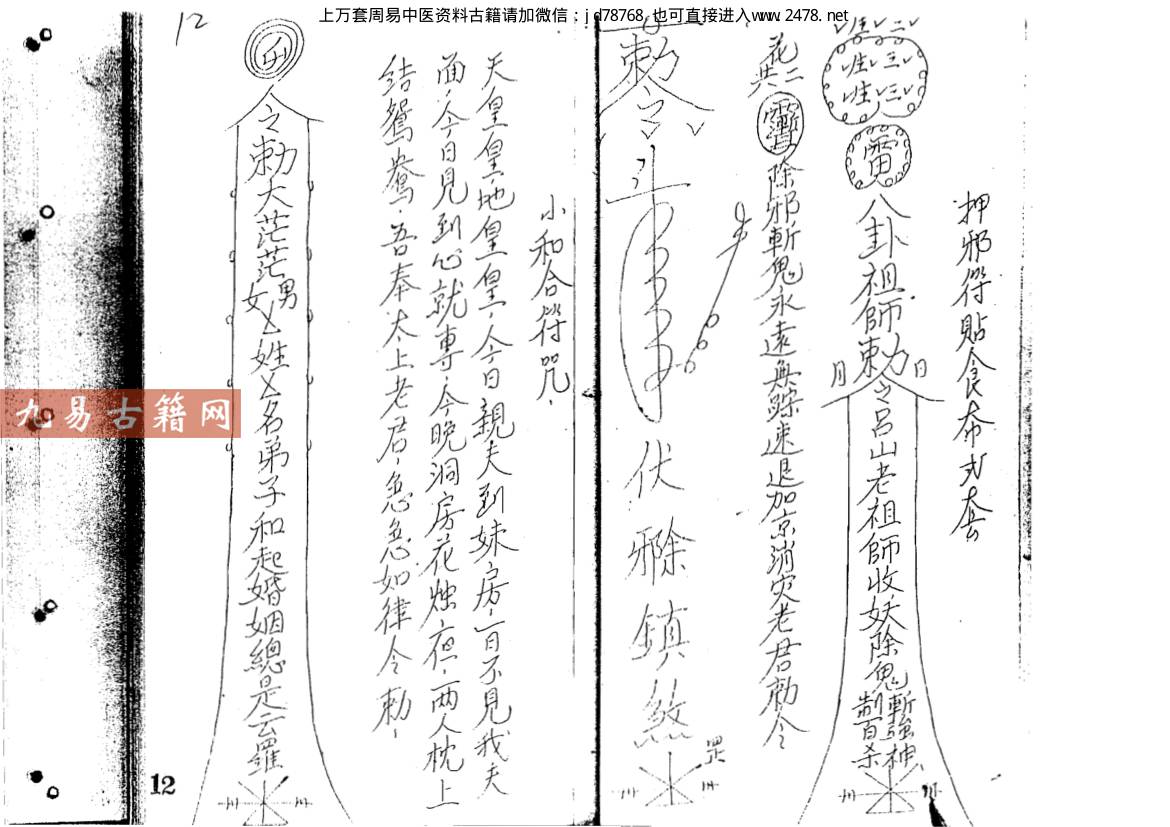 上万套周易中医资料古籍请加微信：jd78768 也可直接进入www.2478.net
押邪符貼食布式套
生 二
生 三
生 三
雷
八卦祖師勅令呂山老祖師收妖除鬼斬強神
制百杀
月 日
花二
共
除邪斬鬼永遠無踪速退加京消灾老君勅令
勅令
伏邪除鎮煞
罡
小和合符咒
天皇皇地皇皇今日親夫到妹房一日不見我夫
面今日見到心就專今晚洞房花燭夜兩人枕上
结鴛鴦吾奉太上老君急急如律令勅
令勅大茫茫男女厶姓厶名弟子和起婚姻總是云羅
12
12
九易古籍网